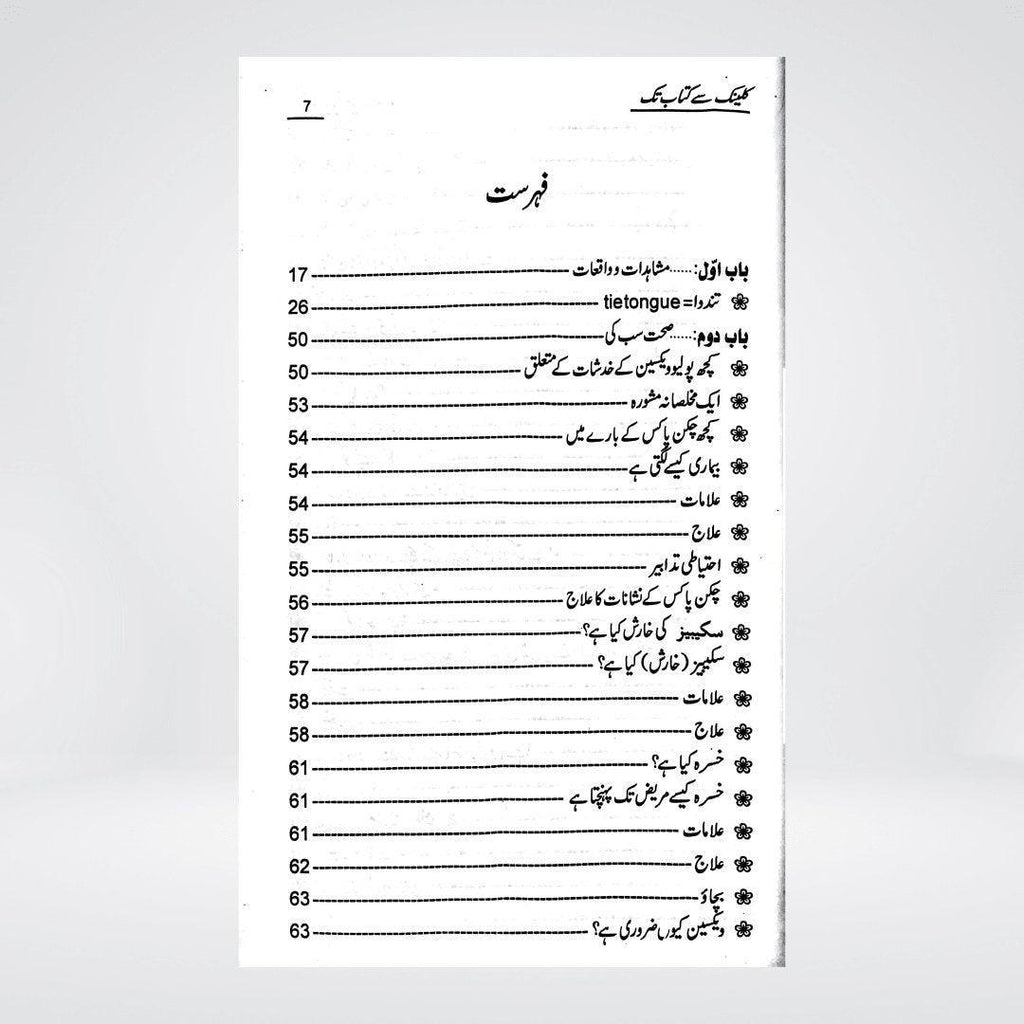 کلینک سے کتاب تک
7
فہرست
باب اوّل:......مشاہدات و واقعات 17
تندوا=tietongue 26
باب دوم:......صحت سب کی 50
کچھ پولیو ویکسین کے خدشات کے متعلق 50
ایک مخلصانہ مشورہ 53
کچھ چکن پاکس کے بارے میں 54
بیماری کیسے لگتی ہے 54
علامات 54
علاج 55
احتیاطی تدابیر 55
چکن پاکس کے نشانات کا علاج 56
سکیبیز کی خارش کیا ہے؟ 57
سکیبیز (خارش) کیا ہے؟ 57
علامات 58
علاج 58
خسرہ کیا ہے؟ 61
خسرہ کیسے مریض تک پہنچتا ہے 61
علامات 61
علاج 62
بچاؤ 63
ویکسین کیوں ضروری ہے؟ 63